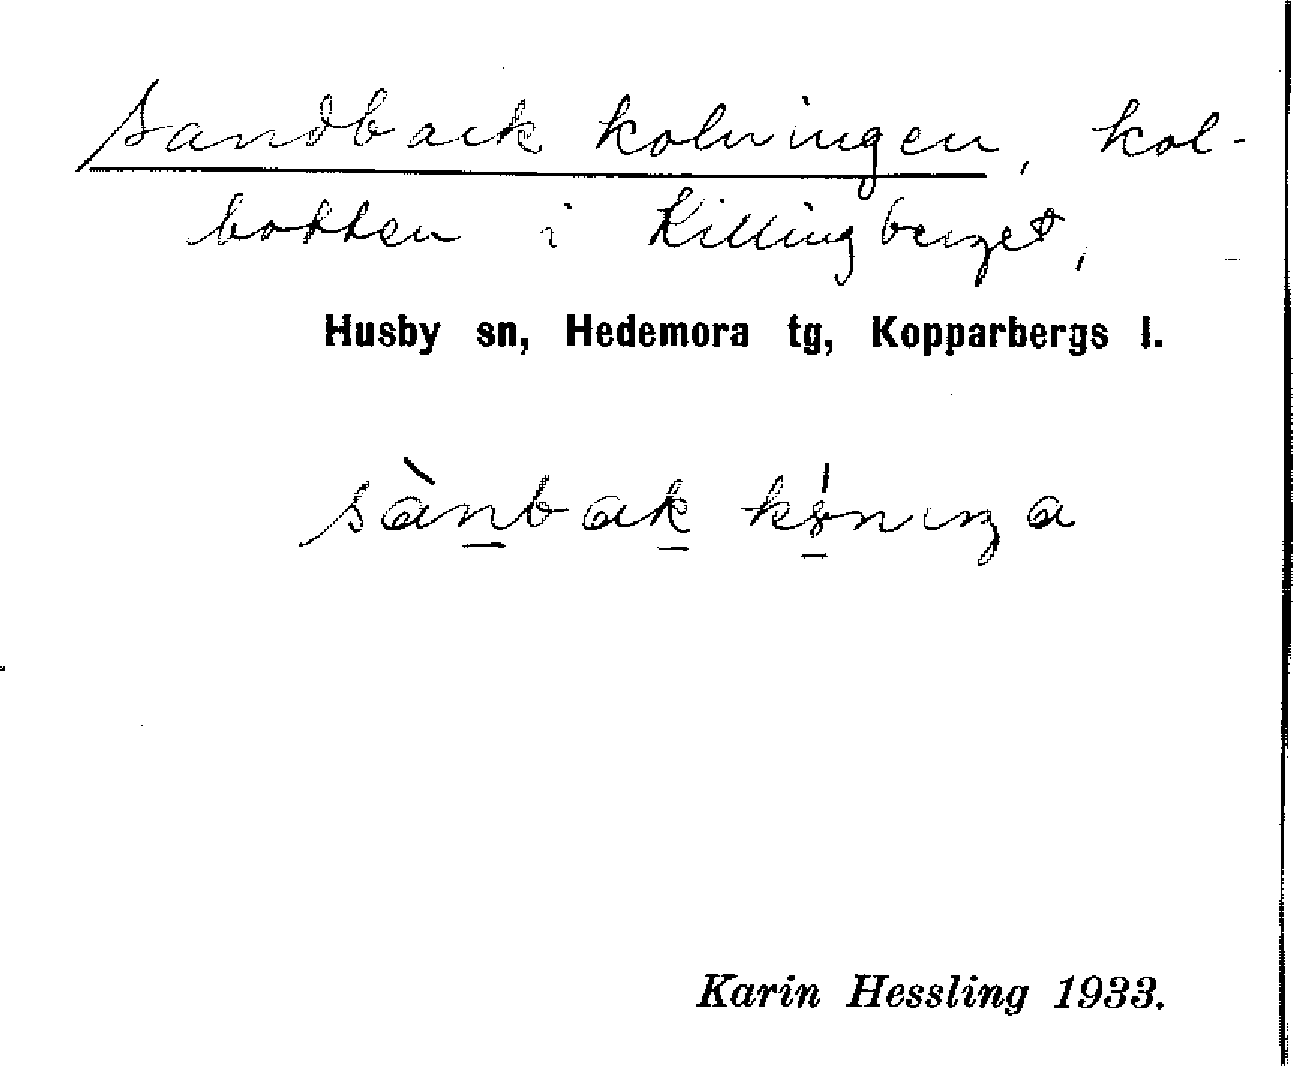 Sandback kolningen, kol-
botten i Killingberget,
Husby sn, Hedemora tg, Kopparbergs l.
sànbak
Karin Hessling 1933.